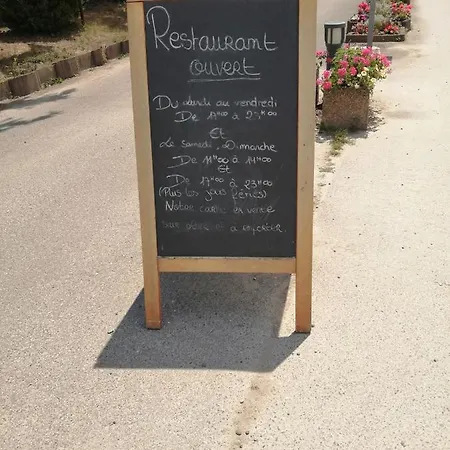 Restaurant
ouvert
Du au vendredi
De à
Et
Le samedi, Dimanche
De 11H00 à 14H00
Et
De 17H00 à 23H00
(Plus les jours fériés)
Notre carte en vente
sur place et à emporter